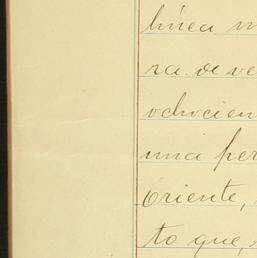 línea m
ra. de ve
ochocien
una per
oriente,
to que,